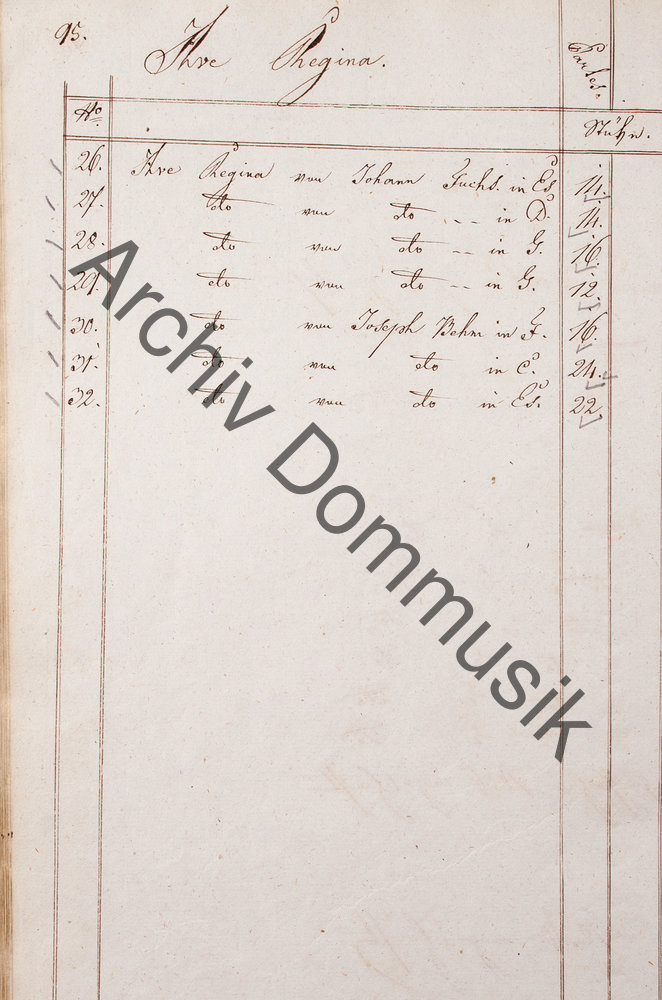 95.
Ave Regina.
Partes.
No.
Stühn.
26. Ave Regina von Johann Fuchs. in Es 14.
27. do von do -- in D. 14.
28. do von do -- in G. 16.
29. do von do -- in G. 12.
30. do von Joseph Behm in F. 16.
31. do von do in C. 24.
32. do von do in Es. 22.
Archiv Dommusik